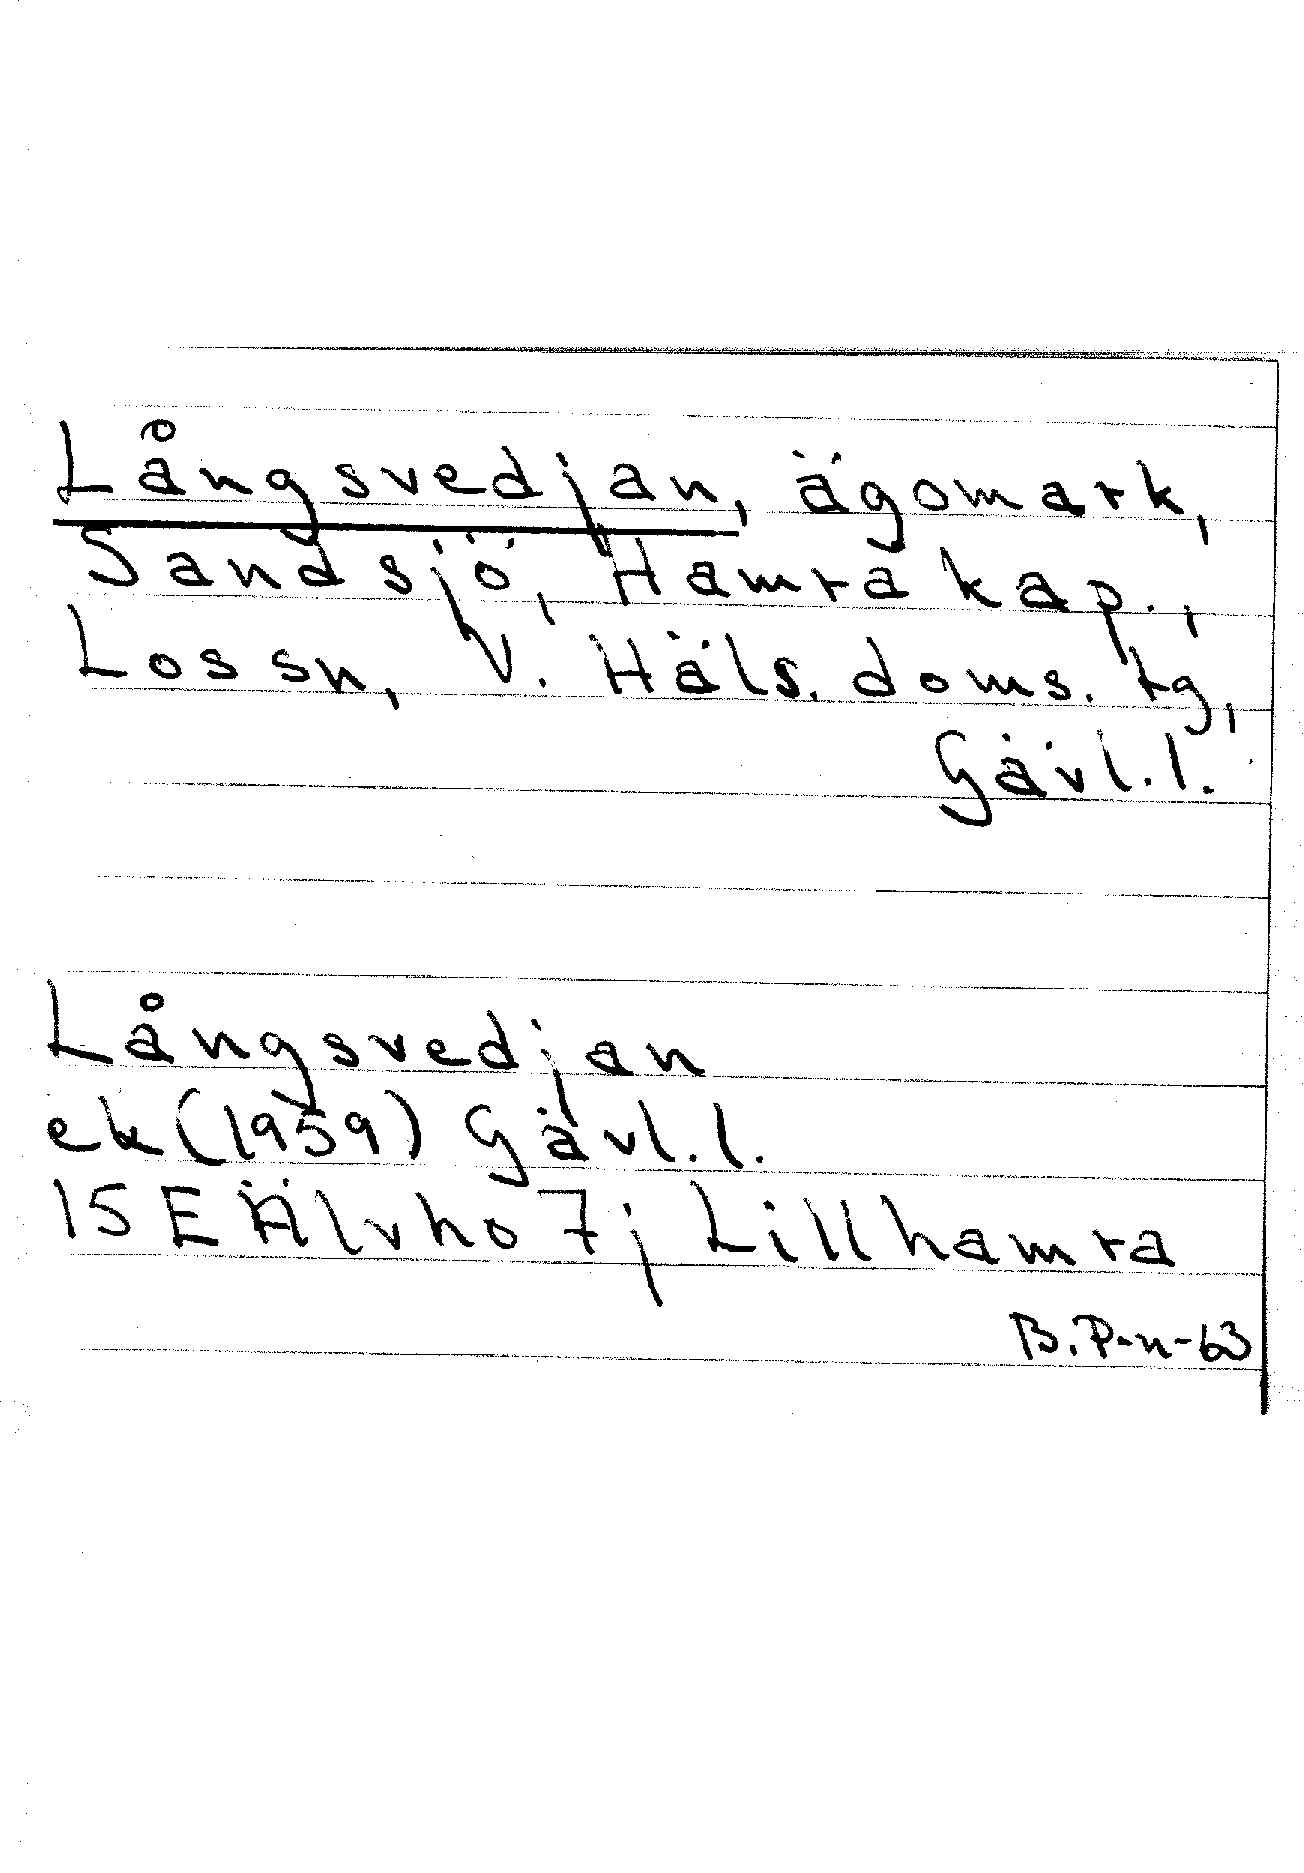 Långsvedjan, ägomark,
Sandsjö, Hamra kap.,
Lossn, V. Häls. doms. tg,
Gävl. l.
Långsvedjan
ek (1959) Gävl. l.
15 E Älvho 7j Lillhamra
B. P-n-63